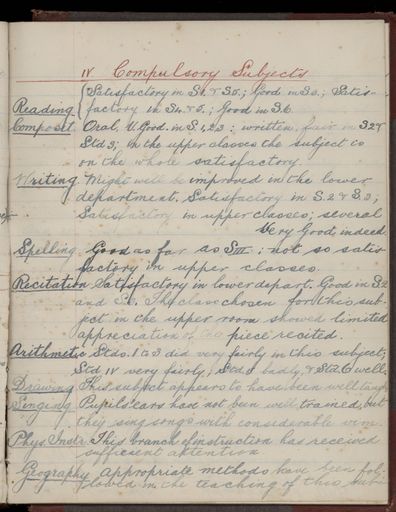 IV Compulsory Subjects
Satisfactory in S4 & S5; Good in S3; Satis-
Reading factory in S4 & 5; Good in S.6
Composit. Oral, V. Good in S. 1,2,3; written, fair in S2 &
Std 3; in the upper classes the subject is
on the whole satisfactory.
Writing Might well be improved in the lower
department. Satisfactory in S.2 & S.3;
Satisfactory in upper classes; several
Very Good indeed
Spelling Good as far as SIII; not so satis-
factory in upper classes.
Recitation Satisfactory in lower depart. Good in S.2
and The class chosen for this sub-
ject in the upper room showed limited
appreciation of the piece recited.
Arithmetic Stds. 1 to 3 did very fairly in this subject;
Std IV very fairly; Std 5 badly, & Std 6 well.
Drawing This subject appears to have been well taught
Singing Pupils' ears had not been well trained, but
they sing songs with considerable vim.
Phys. Instr. This branch of instruction has received
sufficient attention
Geography Appropriate methods have been fol-
lowed in the teaching of this subj